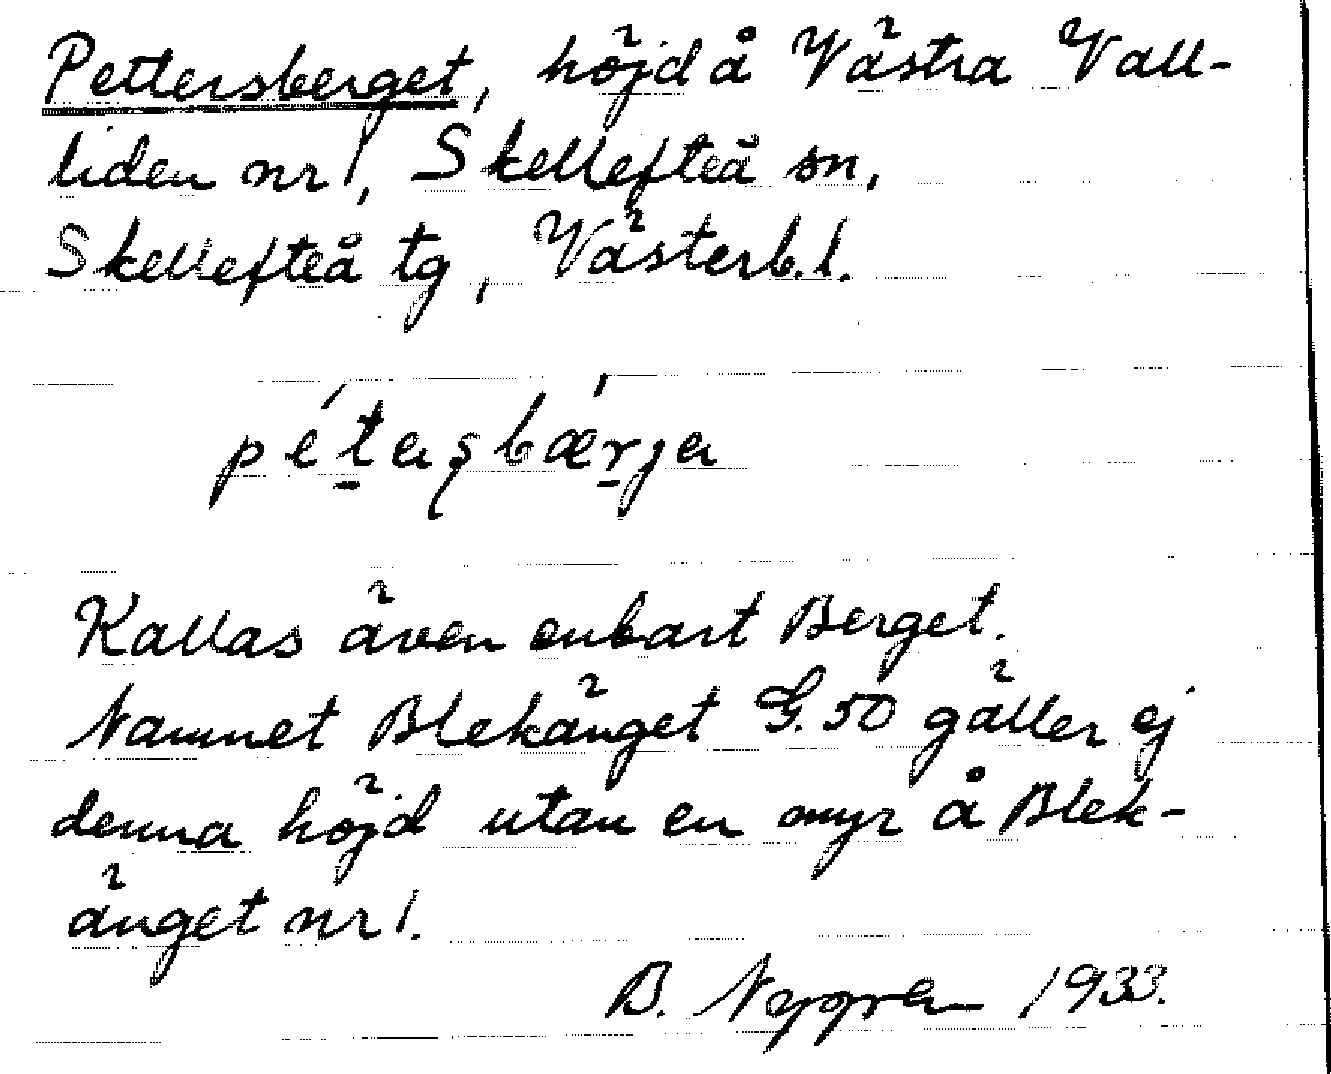 Pettersberget, höjd å Västra Vall-
liden nr 1, Skellefteå sn,
Skellefteå tg, Västerb. l.
pétaʂbærja
Kallas även enbart Berget.
Namnet Blekänget G. 50 gäller ej
denna höjd utan en myr å Blek-
änget nr 1.
B. Nygren 1933.